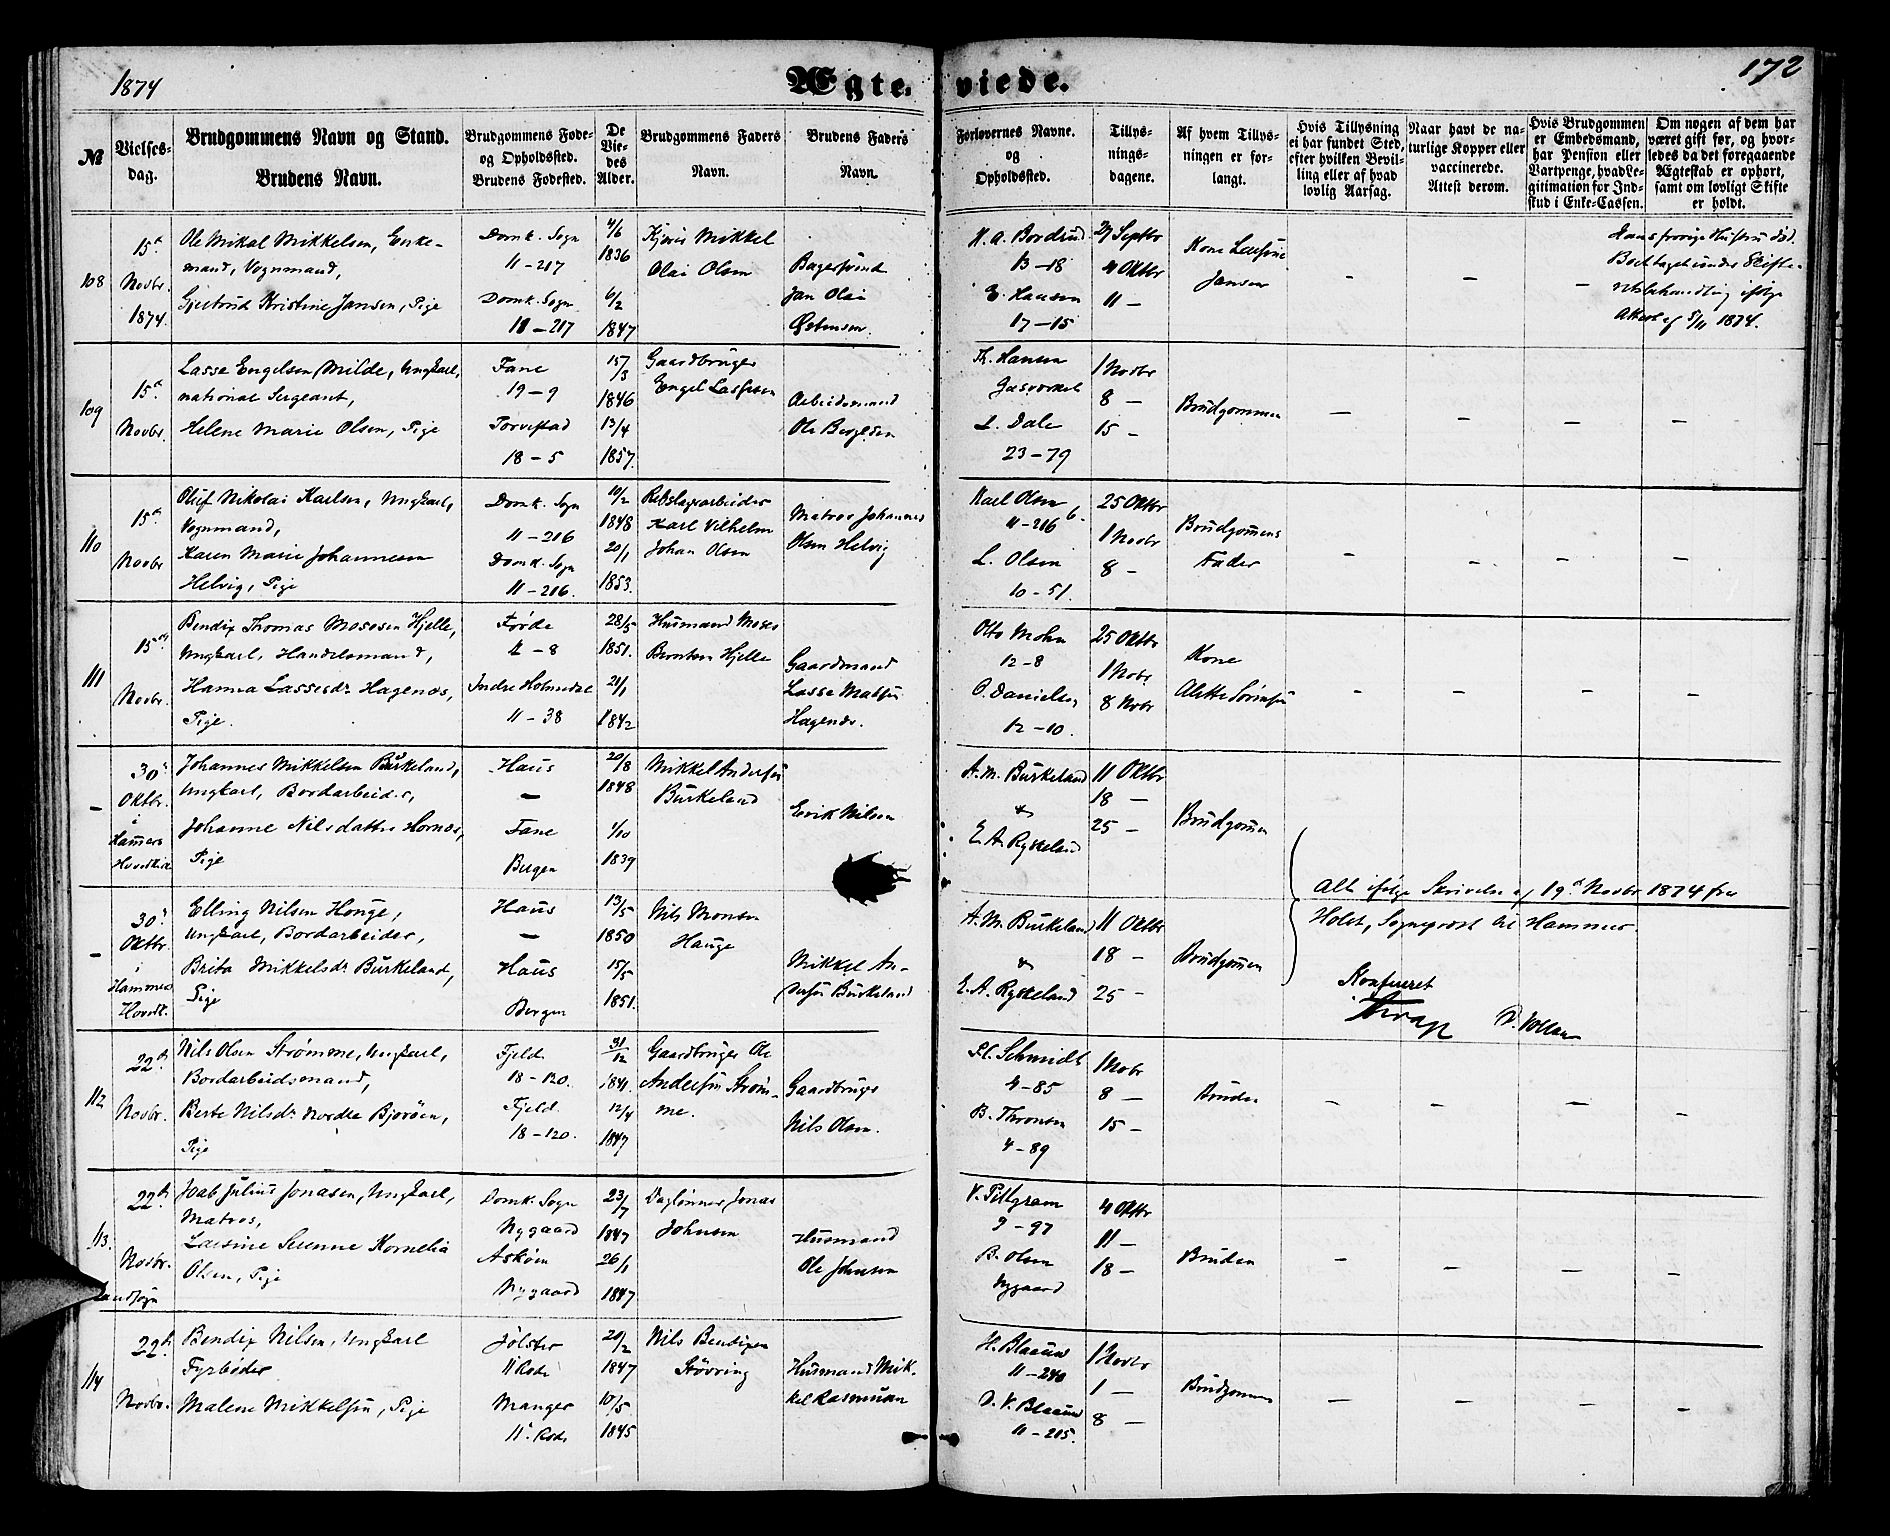 1874
Ægte-viede.
172
No
Vielses-
dag.
Brudgommens Navn og Stand.
Brudens Navn.
Brudgommens Føde-
og Opholdssted.
Brudens Fødested.
De
Vie-
des
Alder.
Brudgommens Faders
Navn.
Brudens Faders
Navn.
Forlovernes Navne.
og
Opholdssted.
Tillys-
nings-
dagene.
Af hvem Tillys-
ningen er for-
langt.
Hvis Tillysning
ei har fundet Sted,
efter hvilken Bevil-
ling eller af hvad
lovlig Aarsag.
Naar havt de na-
turlige Kopper eller
vaccinerede.
Attest derom.
Hvis Brudgommen
er Embedsmand,
har Pension eller
Vartpenge, hvad Le-
gitimation for Ind-
skud i Enke-Cassen.
Om nogen af dem har
været gift før, og hvor-
ledes da det foregaaende
Ægteskab er ophørt,
samt om lovligt Skifte
er holdt.
108
15de
Novbr.
1874.
Ole Mikal Mikkelsen, Enke-
mand, Vognmand,
Gjertrud Kristine Jansen, Pige
Domk. Sogn
11-217
Domk. Sogn
11-217
4/6
1836
6/2
1847
Mikkel
Olai Olsen
Jan Olai
H. A. Bordrud
13-18
E. Hansen
17-15
27 Septbr
4 Oktbr
11 -
Kone
Jansen
-
-
-
Hans forrige Hustru død.
Boet taget under Skifte-
retsbehandling ifølge
Attest af 5/11 1874.
109
15de
Novbr.
Lasse Engelsen Milde, Ungkarl,
national Sergeant,
Helene Marie Olsen, Pige
Fane
19-9
Torvestad
18-5
15/3
1846
13/4
1857.
Gaardbruger
Engel Lassesen
Arbeidsmand
Ole
Th. Hansen
Gasværket
L. Dale
23-79
1 Novbr
8 -
15 -
Brudgommen
-
-
-
-
110
15de
Novbr
Oluf Nikolai Karlsen, Ungkarl,
Vognmand,
Karen Marie Johannesen
Helvig, Pige
Domk. Sogn
11-216
Domk. Sogn
11-216.
10/2
1848
20/1
1853.
Rebslagerarbeider
Karl Vilhelm
Johan Olsen
Matros Johannes
Olsen Helvig
Karl Olsen
11-216 b.
L. Olsen
10-51.
25 Oktbr
1 Novbr
8 -
Brudgommens
Fader
-
-
-
-
111
15de
Novbr.
Bendix Thomas Mosesen Hjelle,
Ungkarl, Handelsmand,
Hanna Lassesdr Hagenæs,
Pige.
Førde
-8
Indre Holmedal
11-38
28/5
1851.
21/1
1842
Husmand Moses
Berntsen Hjelle
Gaardmand
Lasse Matsen
Hagenæs.
Otto Mohn
12-8
O. Danielsen
12-10.
25 Oktbr
1 Nobr
8 Nobr
Kone
-
-
-
-
-
30te
Oktbr.
i
Hammers
Hovedkirke
Johannes Mikkelsen Burkeland,
Ungkarl, Bordarbeider,
Johanne Nilsdatter Hornæs,
Pige
Haus
-
Fane
Bergen
20/8
1848
1/10
1839
Mikkel Andersen
Burkeland
Erik Nilsen
A. M. Burkeland
&
E. A. Rykkeland
11 Oktbr
18 -
25 -
Brudgommen
Alt ifølge Skrivelse af 19de Novbr 1874 fra
Holst, Sogneprest til Hammer.
Konfereret
-
30te
Oktbr.
i
Hammers
Hovedk.
Elling Nilsen Houge,
Ungkarl, Bordarbeider,
Brita Mikkelsdr Burkeland,
Pige
Haus
-
Haus
Bergen
13/5
1850
15/5
1851.
Nils Monsen
Hauge
Mikkel An-
dersen Burkeland
A. M. Burkeland
&
E. A. Rykkeland
11 Oktbr
18 -
25 -
Brudgommen
112
22de
Novbr.
Nils Olsen Strømme, Ungkarl,
Bordarbeidsmand,
Berte Nilsdr Nordre Bjorøen,
Pige
Fjeld.
18-120.
Fjeld.
18-120.
31/12
1841.
12/4
1847
Gaardbruger Ole
Andersen Strøm-
me.
Gaardbruger
Nils Olsen.
Schmidt
4-85
B. Thronsen
4-89
1 Nobr
8 -
15 -
Bruden
-
-
-
-
113.
22de
Novbr.
Landsogn
Joab Julius Jonasen, Ungkarl,
Matros,
Lausine Serenne Kornelia
Olsen, Pige
Domk. Sogn
Nygaard
Askøen
Nygaard
23/7
1847
26/1
1847
Daglønner Jonas
Johnsen
Husmand
Ole Johnsen
V. Piltgram
9-97
B. Olsen
Nygaard
4 Oktbr
11 -
18 -
Bruden
-
-
-
-
114
22de
Novbr.
Bendix Nilsen, Ungkarl
Fyrbøder
Malene Mikkelsen, Pige
Jølster
11 Rode
Manger
11 Rode
20/2
1847
10/5
1845
Nils Bendixen
Støvring
Husmand Mik-
kel Rasmusen
H. Blaauw
11-240
D. V. Blaauw
11-215.
1 Novbr
1 -
8 -
Brudgommen
-
-
-
-